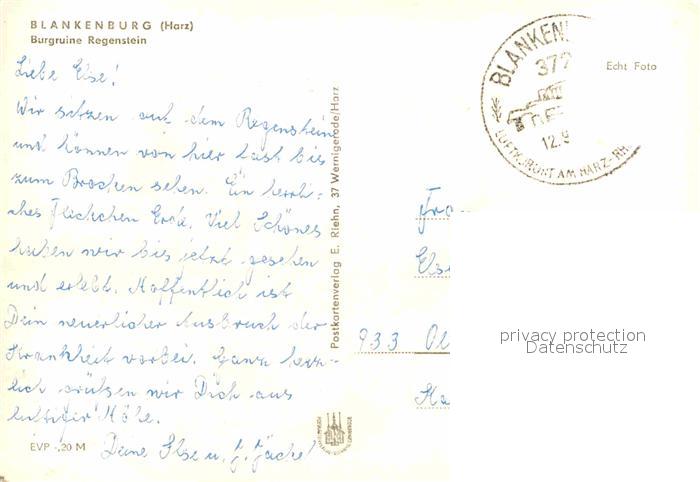 BLANKENBURG (Harz)
Burgruine Regenstein
Liebe Else!
Wir sitzen auf dem Regenstein
und können von hier fast bis
zum Brocken sehen. Ein herrli-
ches Fleckchen Erde. Viel Schönes
haben wir bis jetzt gesehen
und erlebt. Hoffentlich ist
Dein neuerlicher Ausbruch der
Krankheit vorbei. Ganz herz-
lich grüßen wir Dich aus
luftiger Höhe.
Deine Ilse u.
EVP -,20 M
Postkartenverlag E. Riehn, 37 Wernigerode/Harz
BLANKEN
372
12.9
LUFTKURORT AM HARZ-
Echt Foto
Fra
Else
933 Ol
privacy protection
Datenschutz